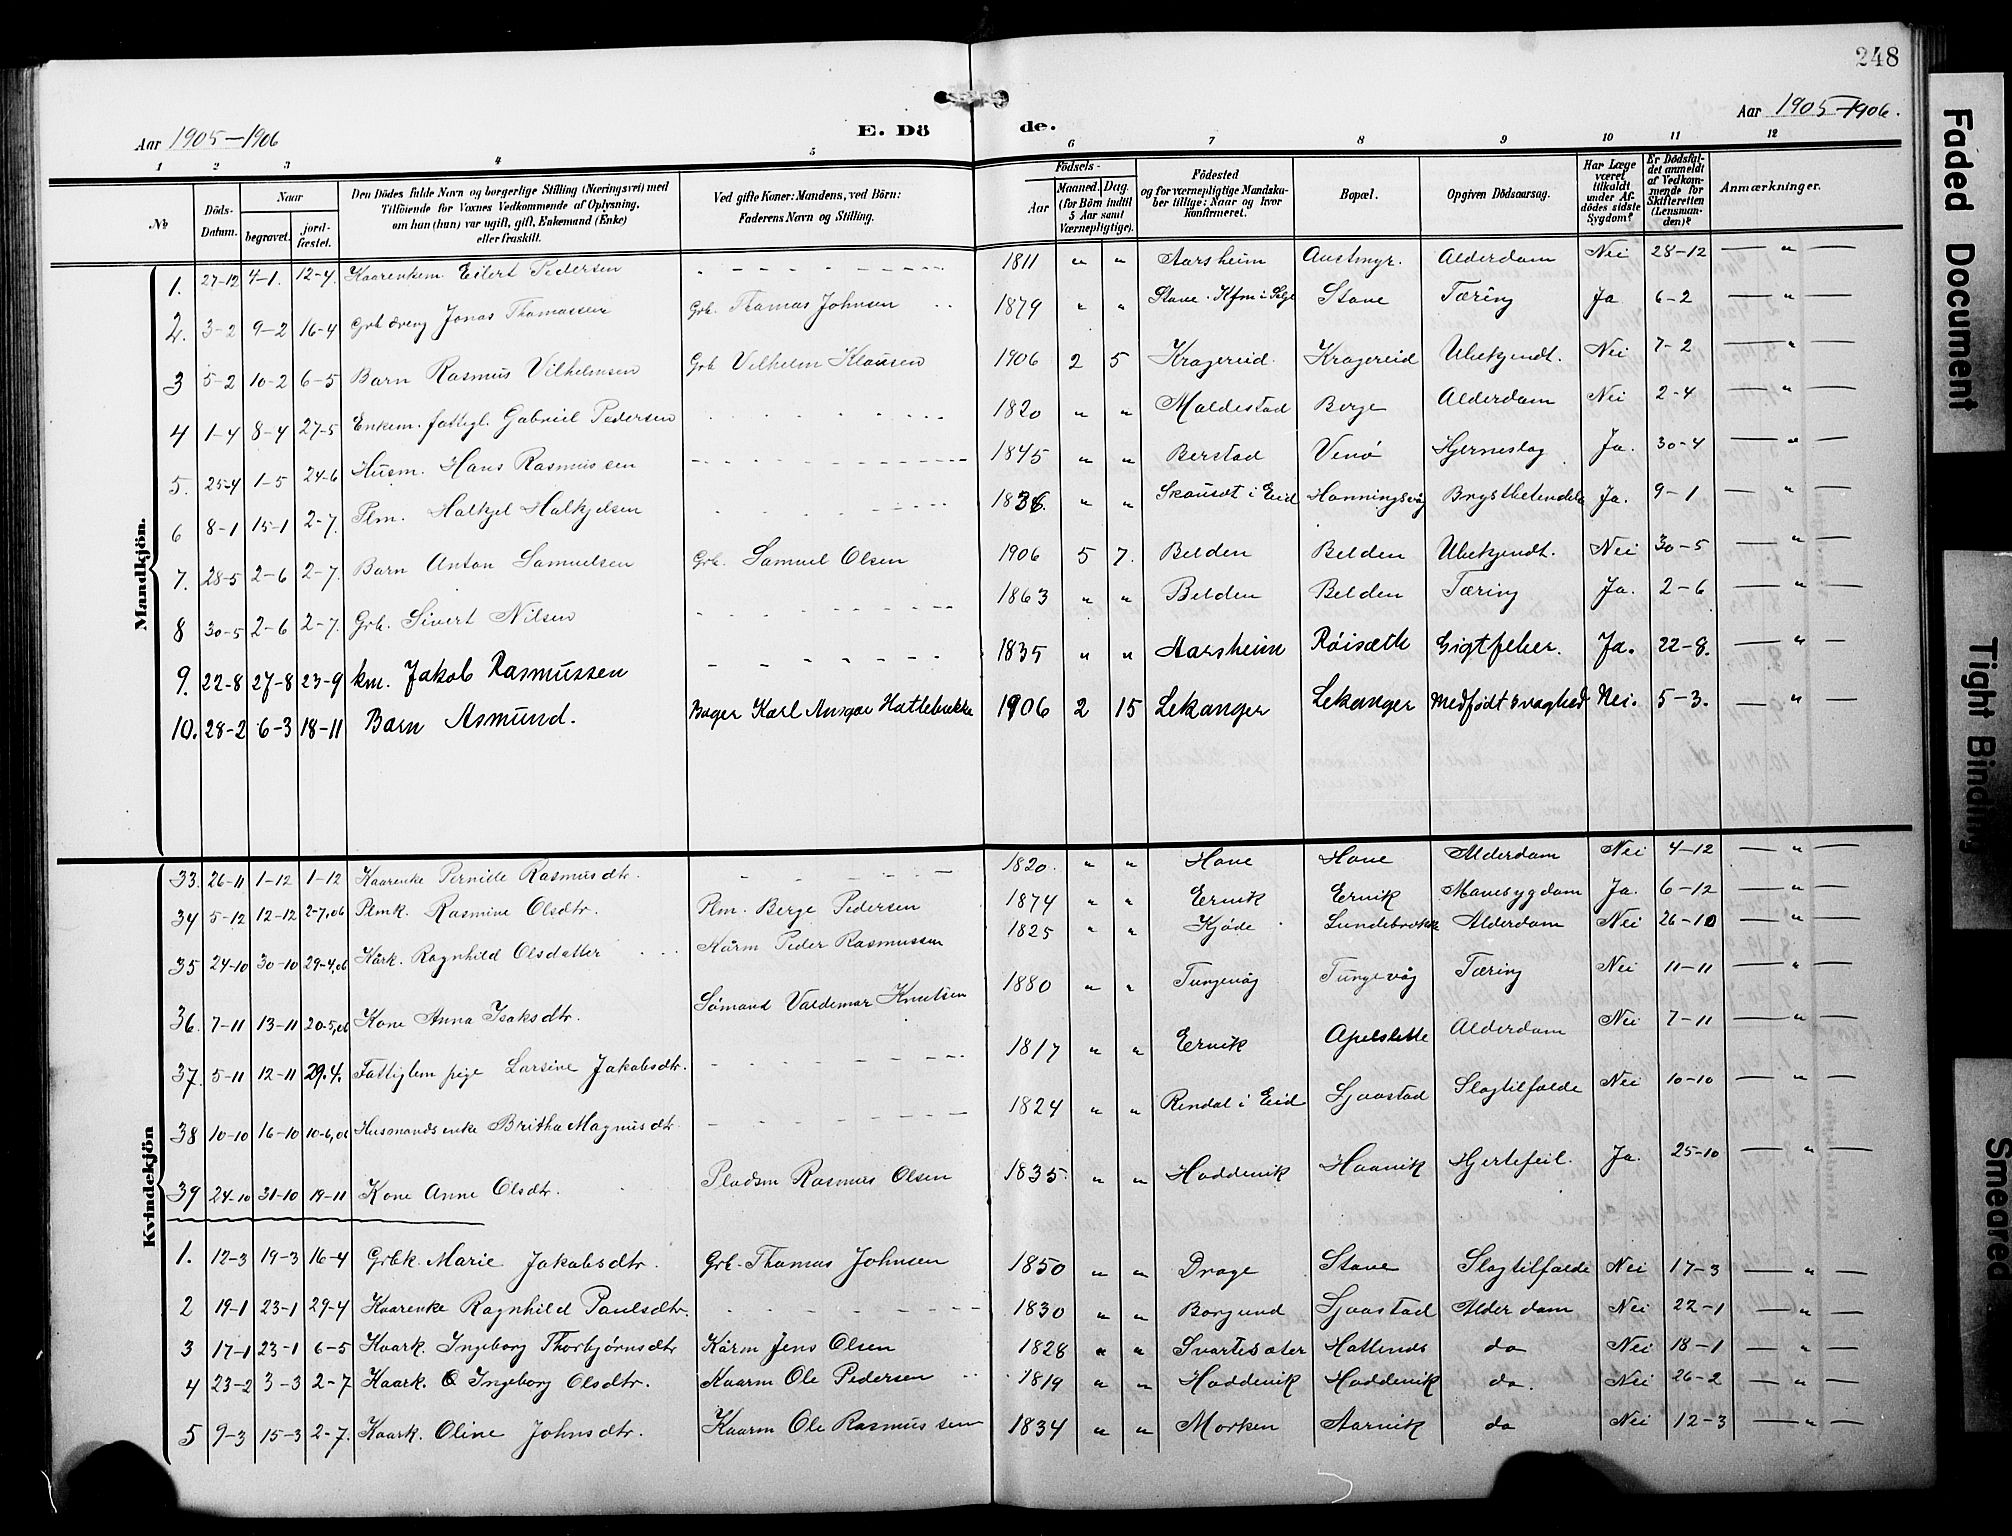 248
Aar 1905–1906
E. Dö
de.
Aar 1905–1906.
1 2 3 4 5 6 7 8 9 10 11 12
№
Döds-Datum.
Naar
begravet.
jord-fæstet.
Den Dödes fulde Navn og borgerlige Stilling (Næringsvei) med
Tilföiende for Voxnes Vedkommende af Oplysning,
om hun (han) var ugift, gift, Enkemand (Enke)
eller fraskilt.
Ved gifte Koner: Mandens, ved Börn:
Faderens Navn og Stilling.
Födsels-
Aar
Maaned. Dag.
(for Börn indtil
5 Aar samt
Værnepligtige).
Födested
og for værnepligtige Mandska-
ber tillige: Naar og hvor
konfirmeret.
Bopæl.
Opgiven Dödsaarsag.
Har Læge
været
tilkaldt
under Af-
dödes sidste
Sygdom?
Er Dödsfal-
det anmeldt
af Vedkom-
mende for
Skifteretten
(Lensman-
den)?
Anmærkninger.
Mandkjön.
1. 27-12 4-1 12-4 Kaarenkem Eilert Pedersen - - - - 1811 " " Aarsheim Austmyr. Alderdom Nei 28-12 — " —
2. 3-2 9-2 16-4 Grb dreng Jonas Thomassen Grb. Thomas Johnsen 1879 " " Stave. Kfm i Selje Stave Tæring Ja 6-2 — " —
3 5-2 10-2 6-5 Barn Rasmus Vilhelmsen Grb Vilhelm Klausen 1906 2 5 Kragereid Kragereid Ubekjendt. Nei 7-2 — " —
4 1-4 8-4 27-5 Enkem. fattigl. Gabriel Pedersen - - - - 1820 " " Maldestad Berge Alderdom Nei 2-4 — " —
5. 25-4 1-5 24-6 Husm. Hans Rasmussen - - - - 1845 " " Berstad Venö Hjerneslag Ja. 30-4 — " —
6 8-1 15-1 2-7. Plm. Halkjel Halkjelsen - - - - 1836. " " i Eid Honningsvåg Brystbetendelse Ja. 9-1 — " —
7. 28-5 2-6 2-7. Barn Anton Samuelsen Grb. Samuel Olsen 1906 5 7. Belden Belden Ubekjendt. Nei 30-5 — " —
8 30-5 2-6 2-7. Grb. Sivert Nilsen - - - - 1863 " " Belden Belden Tæring Ja. 2-6 — " —
9. 22-8 27-8 23-9 km. Jakob Rasmussen - - - - 1835 " " Aarsheim Röisæth Gigtfeber. Ja. 22-8. — " —
10. 28-2 6-3 18-11 Barn Asmund. Bager Karl Ansgar Hattebrekke 1906 2 15 Lekanger Lekanger Medfödt svaghed Nei. 5-3. — " —
Kvindekjön
33. 26-11 1-12 1-12 Kaarenke Pernille Rasmusdtr. - - - - 1820. " " Hove Hove Alderdom Nei 4-12 — " —
34 5-12 12-12 2-7,06 Plmk. Rasmine Olsdtr. Plm. Berge Pedersen 1874 " " Ervik Ervik Mavesygdom Ja. 6-12 — " —
35 24-10 30-10 29-4,06 Kårk. Ragnhild Olsdatter Kårm Peder Rasmussen 1825 " " Kjöde Lundebrekke Alderdom Nei 26-10 — " —
36. 7-11 13-11 20-5,06 Kone Anna Isaksdtr. Sömand Valdemar Knutsen 1880 " " Tungevåg Tungevåg Tæring Nei 11-11 — " —
37. 5-11 12-11 29.4. Fattiglem pige Larsine Jakobsdtr. - - - - 1817 " " Ervik Apelslette Alderdom Nei 7-11 — " —
38 10-10 16-10 10-6,06 Husmandsenke Britha Magnusdtr. - - - - 1824 " " Rendal i Eid Sjaastad Slagtilfælde Nei 10-10 — " —
39 24-10 31-10 19-11 Kone Anne Olsdtr. Pladsm Rasmus Olsen 1835. " " Hoddevik Haavik Hjertefeil. Ja. 25-10 — " —
1. 12-3 19-3 16-4 Grbk. Marie Jakobsdtr. Grb. Thomas Johnsen 1850 " " Drage Stave Slagtilfælde Nei 17-3 — " —
2 19-1 23-1 29-4 Kaarenke Ragnhild Paulsdtr. - - - - 1830 " " Borgund Sjaastad Alderdom Nei 22-1 — " —
3 17-1 23-1 6-5 Kaark. Ingeborg Thorbjörnsdtr Kårm Jens Olsen 1828 " " Svartesæter Hallends do Nei 18-1 — " —
4 23-2 3-3 2-7 Kaark. Ingeborg Olsdtr. Kaarm Ole Pedersen 1819 " " Hoddevik Hoddevik do. Nei 26-2 — " —
5 9-3 15-3 2-7. Kaark. Oline Johnsdtr. Kaarm Ole Rasmussen 1834 " " Morken Aarvik do Nei 12-3 — " —
Faded Document
Tight Binding
Smeared